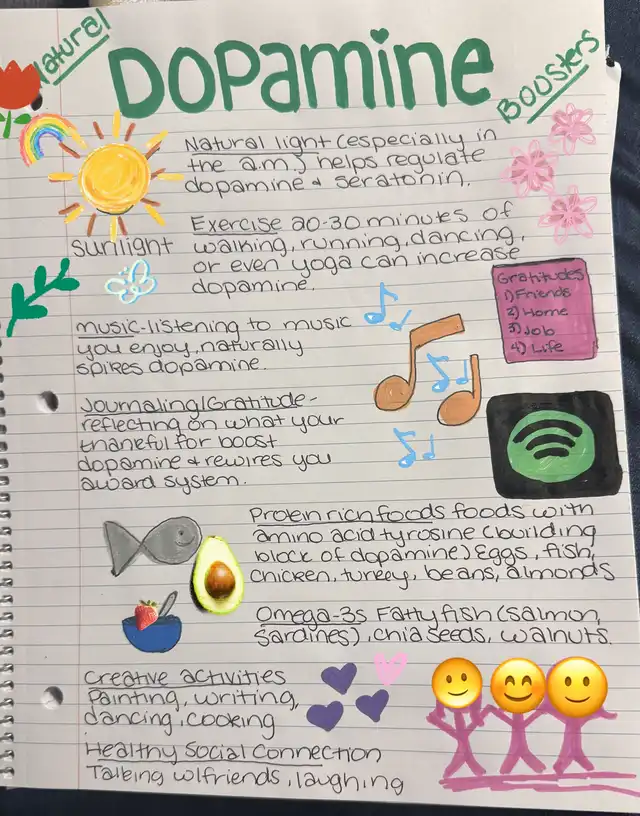 Natural
DOPamine
BOOSTers
Natural light (especially in
the a.m.) helps regulate
dopamine & seratonin.
sunlight
Exercise 20-30 minutes of
walking, running, dancing,
or even yoga can increase
dopamine.
Gratitudes
1) Friends
2) Home
3) Job
4) Life
music-listening to music
you enjoy, naturally
spikes dopamine.
Journaling/Gratitude-
reflecting on what your
thankful for boost
dopamine & rewires you
award system.
Protein rich foods foods with
amino acid tyrosine (building
block of dopamine) Eggs, fish,
chicken, turkey, beans, almonds
Omega-3s Fatty fish (salmon,
sardines), chia seeds, walnuts.
Creative activities
Painting, writing,
dancing, cooking
Healthy Social Connection
Talking w/friends, laughing